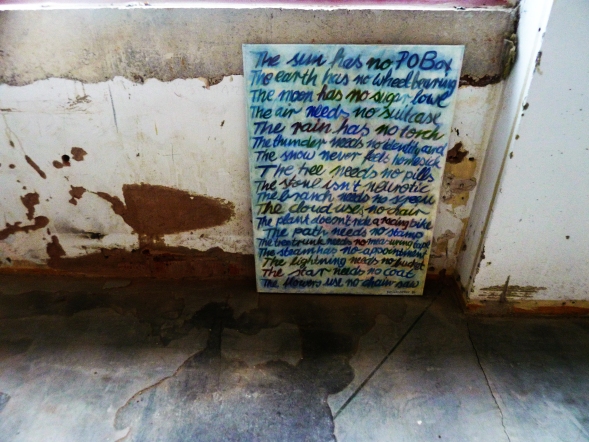 The sun has no PO Box
The earth has no wheel bearing
The moon has no sugar bowl
The air needs no suitcase
The rain has no torch
The thunder needs no identity card
The snow never feels homesick
The tree needs no pills
The stone isn't neurotic
The branch needs no
The cloud uses no chair
The plant doesn't ride a racing bike
The path needs no stamp
The tree trunk needs no measuring tape
The steam has no appointment
The lightning needs no budget
The star needs no coat
The flowers use no chain saw